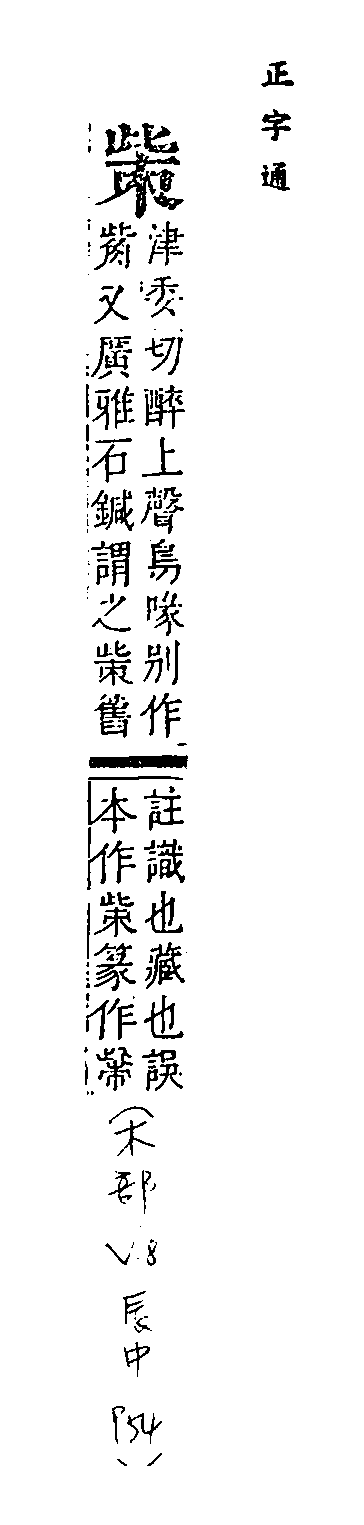 正字通
㭰
津委切醉上聲鳥喙別作
觜又廣雅石鍼謂之㭰舊
註識也藏也誤
本作㭰篆作
(木部 V.8 辰中 P54)